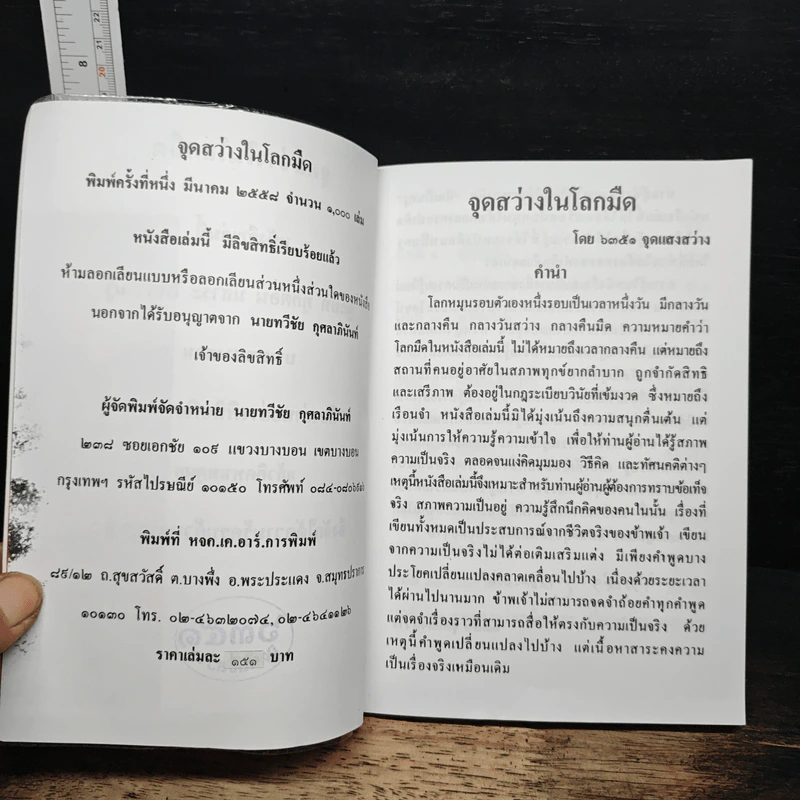 จุดสว่างในโลกมืด
พิมพ์ครั้งที่หนึ่ง มีนาคม ๒๕๕๘ จำนวน ๑,๐๐๐ เล่ม
หนังสือเล่มนี้ มีลิขสิทธิ์เรียบร้อยแล้ว
ห้ามลอกเลียนแบบหรือลอกเลียนส่วนหนึ่งส่วนใดของหนังสือ
นอกจากได้รับอนุญาตจาก นายทวีชัย กุศลาภินันท์
เจ้าของลิขสิทธิ์
ผู้จัดพิมพ์จัดจำหน่าย นายทวีชัย กุศลาภินันท์
๒๓๘ ซอยเอกชัย ๑๐๙ แขวงบางบอน เขตบางบอน
กรุงเทพฯ รหัสไปรษณีย์ ๑๐๑๕๐ โทรศัพท์
พิมพ์ที่ หจก.เค.อาร์.การพิมพ์
๘๙/๑๒ ถ.สุขสวัสดิ์ ต.บางพึ่ง อ.พระประแดง จ.สมุทรปราการ
๑๐๑๓๐ โทร. ๐๒-๔๖๓๒๐๗๔,๐๒-๔๖๔๑๑๒๖
ราคาเล่มละ ๑๕๑ บาท
จุดสว่างในโลกมืด
โดย ๖๓๕๑ จุดแสงสว่าง
คำนำ
โลกหมุนรอบตัวเองหนึ่งรอบเป็นเวลาหนึ่งวัน มีกลางวัน
และกลางคืน กลางวันสว่าง กลางคืนมืด ความหมายคำว่า
โลกมืดในหนังสือเล่มนี้ ไม่ได้หมายถึงเวลากลางคืน แต่หมายถึง
สถานที่คนอยู่อาศัยในสภาพทุกข์ยากลำบาก ถูกจำกัดสิทธิ
และเสรีภาพ ต้องอยู่ในกฎระเบียบวินัยที่เข้มงวด ซึ่งหมายถึง
เรือนจำ หนังสือเล่มนี้มิได้มุ่งเน้นถึงความสนุกตื่นเต้น แต่
มุ่งเน้นการให้ความรู้ความเข้าใจ เพื่อให้ท่านผู้อ่านได้รู้สภาพ
ความเป็นจริง ตลอดจนแง่คิดมุมมอง วิธีคิด และทัศนคติต่างๆ
เหตุนี้หนังสือเล่มนี้จึงเหมาะสำหรับท่านผู้อ่านผู้ต้องการทราบข้อเท็จ
จริง สภาพความเป็นอยู่ ความรู้สึกนึกคิดของคนในนั้น เรื่องที่
เขียนทั้งหมดเป็นประสบการณ์จากชีวิตจริงของข้าพเจ้า เขียน
จากความเป็นจริงไม่ได้ต่อเติมเสริมแต่ง มีเพียงคำพูดบาง
ประโยคเปลี่ยนแปลงคลาดเคลื่อนไปบ้าง เนื่องด้วยระยะเวลา
ได้ผ่านไปนานมาก ข้าพเจ้าไม่สามารถจดจำถ้อยคำทุกคำพูด
แต่จดจำเรื่องราวที่สามารถสื่อให้ตรงกับความเป็นจริง ด้วย
เหตุนี้คำพูดเปลี่ยนแปลงไปบ้าง แต่เนื้อหาสาระคงความ
เป็นเรื่องจริงเหมือนเดิม
8
20
21
22